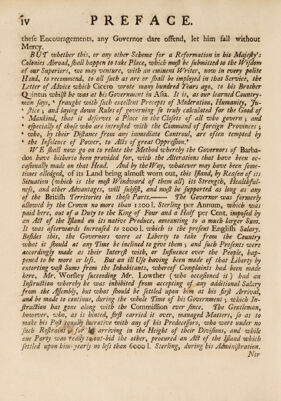 iv PREFACE.
these Encouragements, any Governor dare offend, let him fall without
Mercy.
BUT whether this, or any other Scheme for a Reformation in his Majesty's
Colonies Abroad, shall happen to take Place, which must be submitted to the Wisdom
of our Superiors, we may venture, with an eminent Writer, now in every polite
Hand, to recommend, to all such as are or shall be employed in that Service, the
Letter of Advice which Cicero wrote many hundred Years ago, to his Brother
Quintus whilst he was at his Government in Asia. It is, as our learned Country-
men says, ‘ fraught with such excellent Precepts of Moderation, Humanity, Ju-
‘ stice; and laying down Rules of governing so truly calculated for the Good of
‘ Mankind, that it deserves a Place in the Closets of all who govern; and
‘ especially of those who are intrusted with the Command of foreign Provinces;
‘ who, by their Distance from any immediate Controul, are often tempted by
‘ the Insolence of Power, to Acts of great Oppression.’
WE shall now go on to relate the Method whereby the Governors of Barba-
dos have hitherto been provided for, with the Alterations that have been oc-
casionally made on that Head. And by the Way, whatever may have been some-
times alledged, of its Land being almost worn out, this Island, by Reason of its
Situation (which is the most Windward of them all) its Strength, Healthful-
ness, and other Advantages, will subsist, and must be supported as long as any
of the British Territories in those Parts.—— The Governor was formerly
allowed by the Crown no more than 1200 l. Sterling per Annum, which was
paid here, out of a Duty to the King of Four and a Half per Cent. imposed by
an Act of the Island on its native Produce, amounting to a much larger Sum.
It was afterwards increased to 2000 l. which is the present English Salary.
Besides this, the Governors were at Liberty to take from the Country
what it should at any Time be inclined to give them; and such Presents were
accordingly made as their Interest with, or Influence over the People, hap-
pened to be more or less. But an ill Use having been made of that Liberty by
exacting vast Sums from the Inhabitants, whereof Complaints had been made
here, Mr. Worsley succeeding Mr. Lowther (who occasioned it) had an
Instruction whereby he was inhibited from accepting of any additional Salary
from the Assembly, but what should be settled upon him at his first Arrival,
and be made to continue, during the whole Time of his Government; which In-
struction has gone along with the Commission ever since. The Gentleman,
however, who, as is hinted, first carried it over, managed Matters, so as to
make his Post equally lucrative with any of his Predecessors, who were under no
such Restraint; for he arriving in the Height of their Divisions, and while
one Party was ready to out-bid the other, procured an Act of the Island which
settled upon him yearly no less than 6000 l. Sterling, during his Administration.
Nor